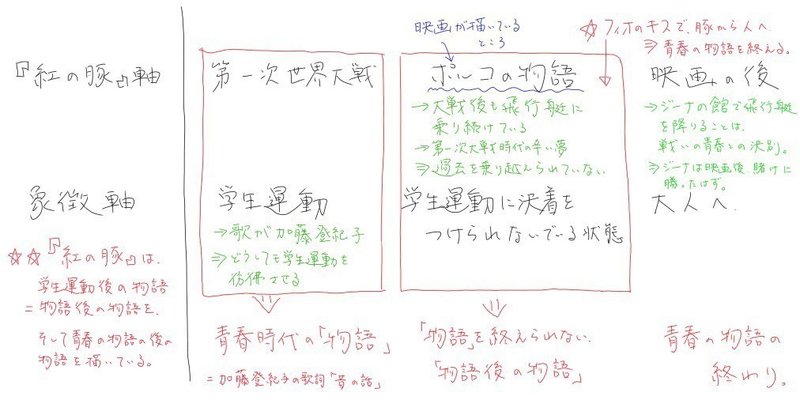 映画が描いている
ところ
☆フィオのキスで、豚から人へ
⇒青春の物語を終える。
『紅の豚』軸
第一次世界大戦
ポルコの物語
映画の後
→大戦後も飛行艇に
乗り続けている
→第一次大戦時代の辛い夢
⇒過去を乗り越えられていない
→ジーナの館で飛行艇
を降りることは、
戦いの青春との決別。
⇒ジーナは映画後、賭けに
勝ったはず。
象徴軸
学生運動
学生運動に決着を
つけられないでいる状態
大人へ、
→歌が加藤登紀子
⇒どうしても学生運動を
彷彿させる
☆☆『紅の豚』は、
学生運動後の物語
=物語後の物語を、
そして青春の物語の後の
物語を描いている。
青春時代の「物語」
=加藤登紀子の歌詞「昔の話」
「物語」を終えられない、
「物語後の物語」
青春の物語の
終わり。